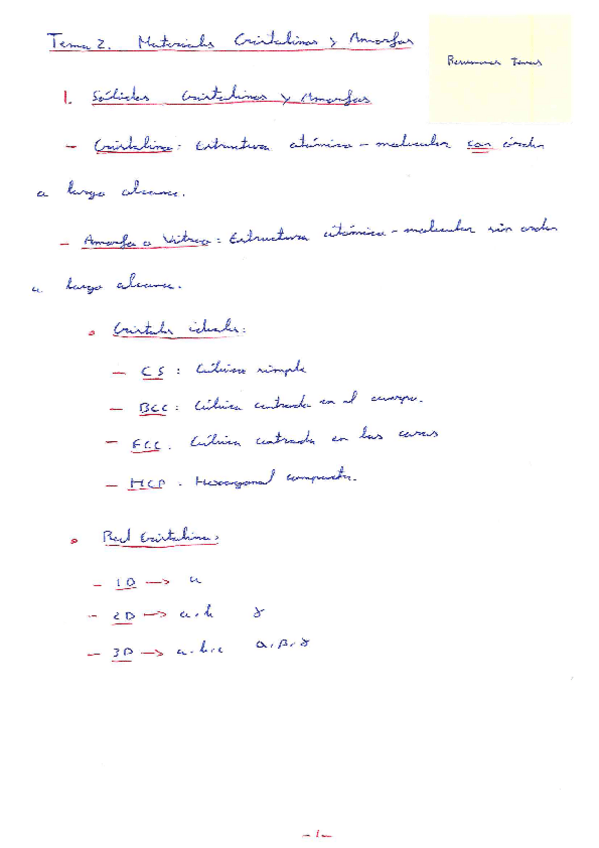 Tema 2. Materiales Cristalinos y Amorfos
Resumenes Temas
1. Sólidos Cristalinos y Amorfos
- Cristalino: Estructura atómica - molecular con órden
a largo alcance.
- Amorfo o Vítreo: Estructura atómica - molecular sin orden
a largo alcance.
• Cristales ideales:
- CS: Cúbico simple
- BCC: Cúbica centrada en el cuerpo.
- FCC. Cúbica centrada en las caras
- HCP. Hexagonal compacta.
• Red Cristalina:
- 1D → a
- 2D → a, b γ
- 3D → a, b, c α, β, γ
- 1 -